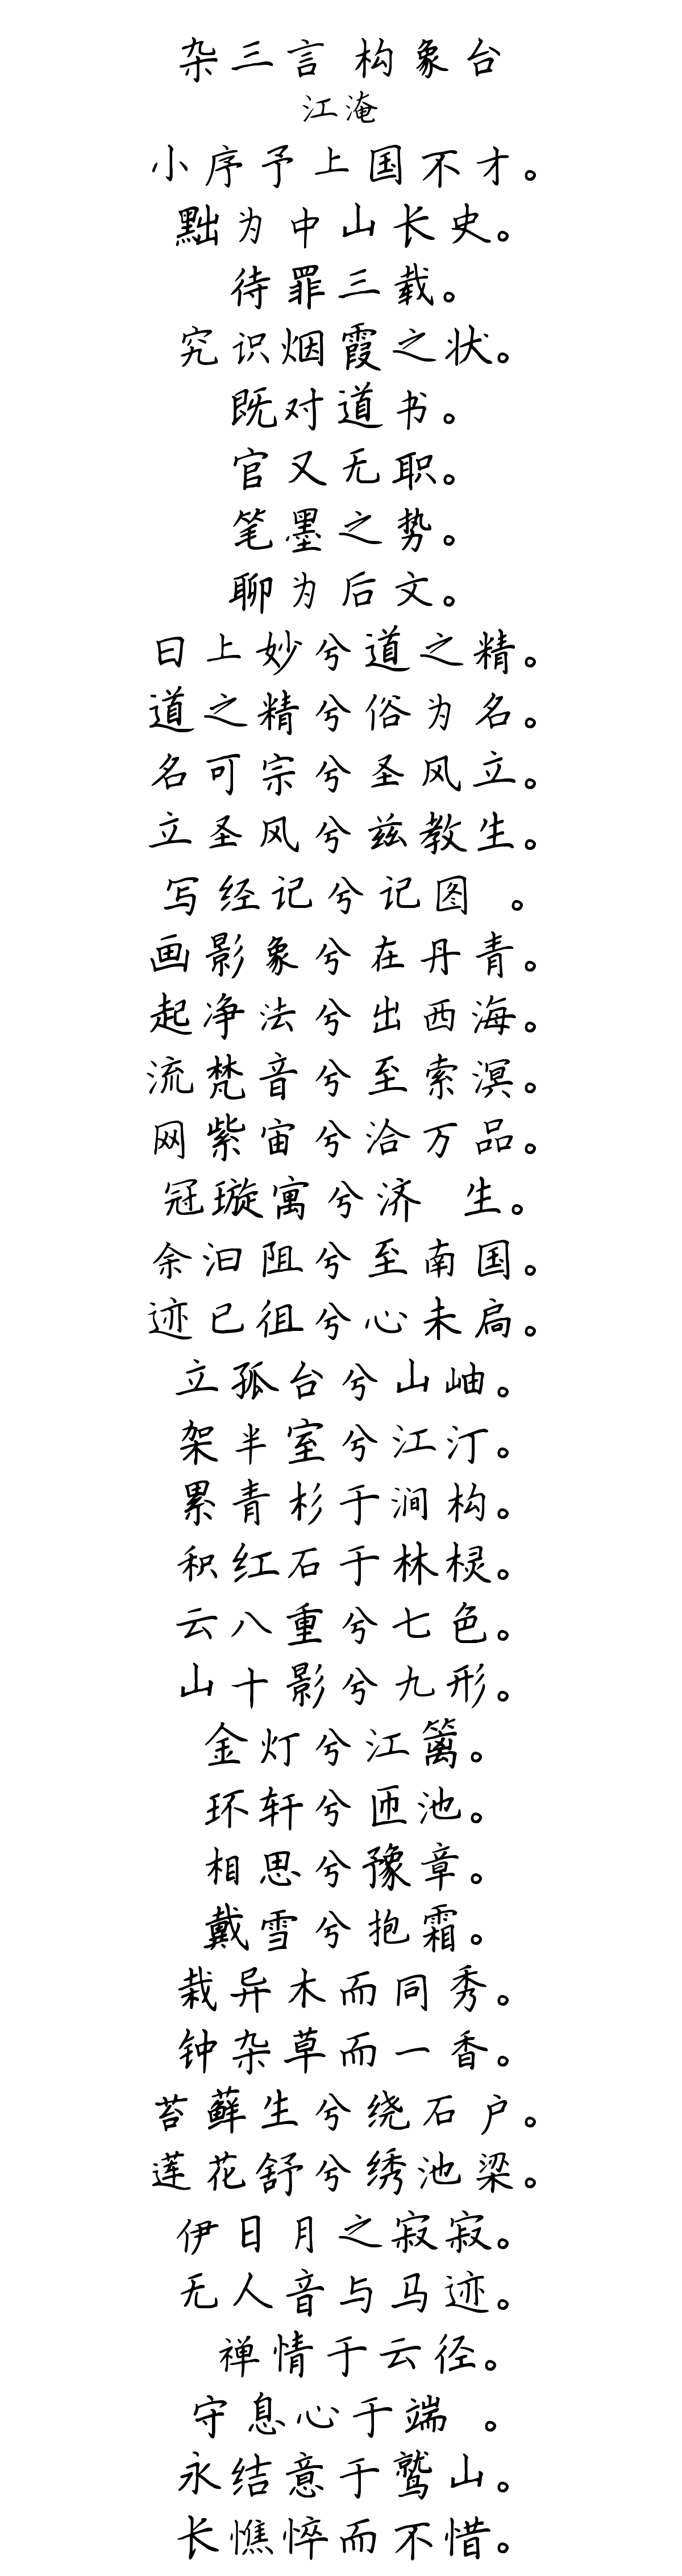 杂三言 构象台
江淹
小序予上国不才。
黜为中山长史。
待罪三载。
究识烟霞之状。
既对道书。
官又无职。
笔墨之势。
聊为后文。
曰上妙兮道之精。
道之精兮俗为名。
名可宗兮圣风立。
立圣风兮兹教生。
写经记兮记图 。
画影象兮在丹青。
起净法兮出西海。
流梵音兮至索溟。
网紫宙兮洽万品。
冠璇寓兮济 生。
余汩阻兮至南国。
迹已徂兮心未扃。
立孤台兮山岫。
架半室兮江汀。
累青杉于涧构。
积红石于林棂。
云八重兮七色。
山十影兮九形。
金灯兮江篱。
环轩兮匝池。
相思兮豫章。
戴雪兮抱霜。
栽异木而同秀。
钟杂草而一香。
苔藓生兮绕石户。
莲花舒兮绣池梁。
伊日月之寂寂。
无人音与马迹。
禅情于云径。
守息心于端 。
永结意于鹫山。
长憔悴而不惜。